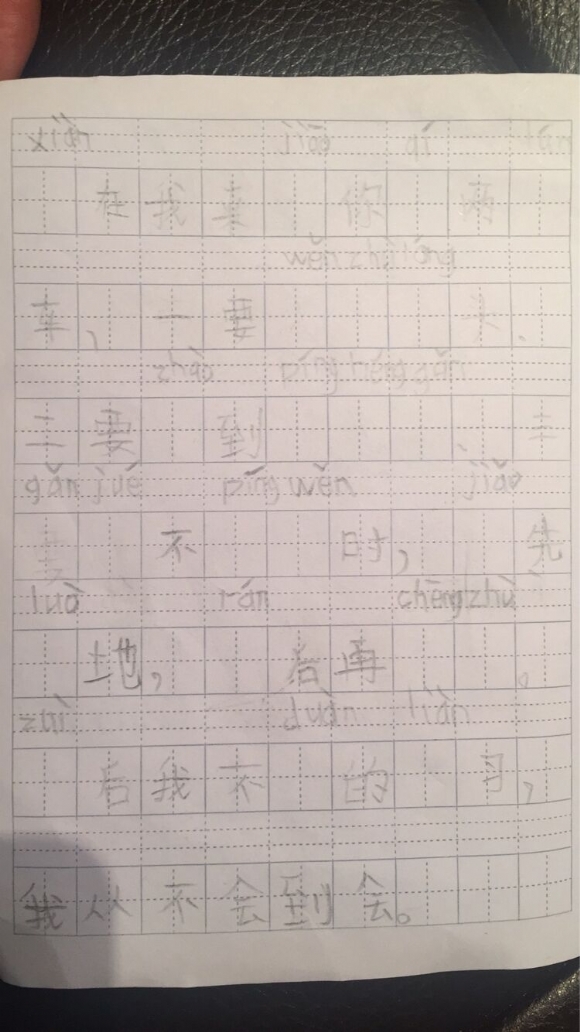 xiàn jiāo qí
在我 你 两
wěn zhù lóng
车，一要 头.
zhǎo píng héng gǎn
二要 到
gǎn jué píng wěn jiǎo
不 时，先
luò rán chēng zhù
地， 后再 。
zuì duàn liàn
后我不 的 习，
我从不会到会。